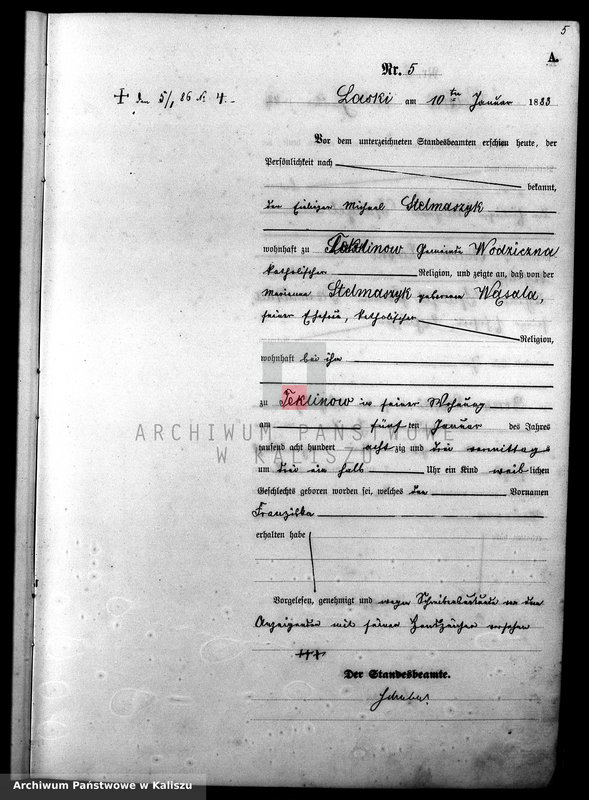 5
A.
Nr. 5
† den 5/1 86 № 4.
Laski am 10ten Januar 1883
Vor dem unterzeichneten Standesbeamten erschien heute, der
Persönlichkeit nach
bekannt,
der Michael Stelmaszyk
wohnhaft zu Teklinow Gemeinde Wodziczna
katholischer Religion, und zeigte an, daß von der
Marianna Stelmaszyk geborenen Wasala,
seiner Ehefrau, katholischer
Religion,
wohnhaft bei ihm
zu Teklinow in seiner Wohnung
am fünf ten Januar des Jahres
tausend acht hundert acht zig und drei vormittags
um drei ein halb Uhr ein Kind weib lichen
Geschlechts geboren worden sei, welches den Vornamen
Franziska
erhalten habe
Vorgelesen, genehmigt und wegen Schreibensunkunde von dem
Anzeigenden mit seinem Handzeichen versehen
+++
Der Standesbeamte.
ARCHIWUM PAŃSTWOWE
W KALISZU
Archiwum Państwowe w Kaliszu